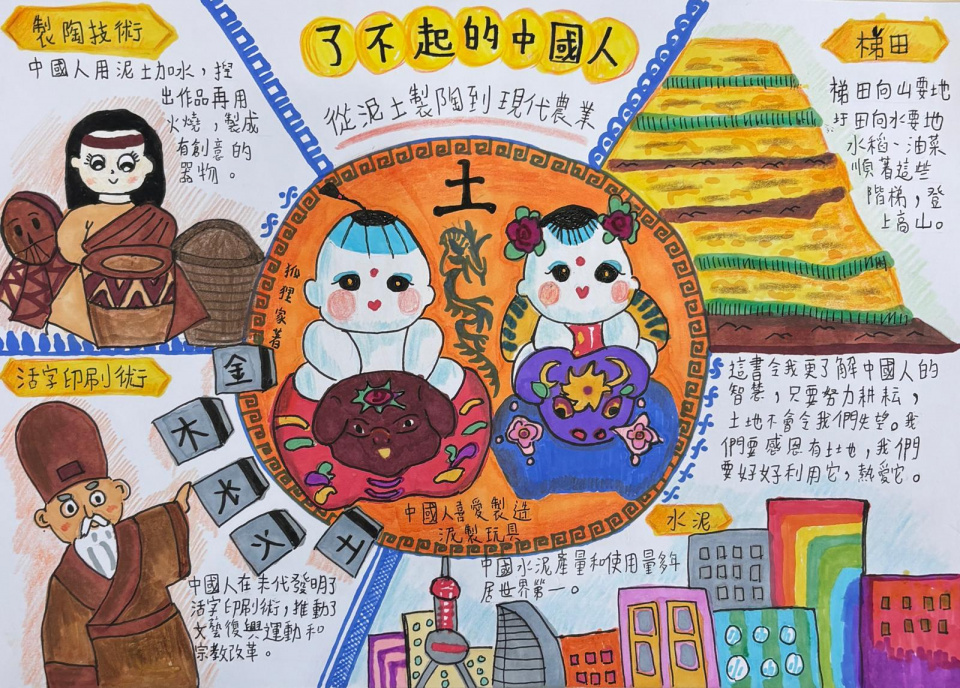 了不起的中國人
從泥土製陶到現代農業
製陶技術
中國人用泥土加水，捏
出作品再用
火燒，製成
有創意的
器物。
梯田
梯田向山要地
圩田向水要地
水稻、油菜
順著這些
階梯，登
上高山。
土
狐狸家著
中國人喜愛製造
泥製玩具
活字印刷術
金
木
水
火
土
中國人在宋代發明了
活字印刷術，推動了
文藝復興運動和
宗教改革。
這書令我更了解中國人的
智慧，只要努力耕耘，
土地不會令我們失望。我
們要感恩有土地，我們
要好好利用它，熱愛它。
水泥
中國水泥產量和使用量多年
居世界第一。